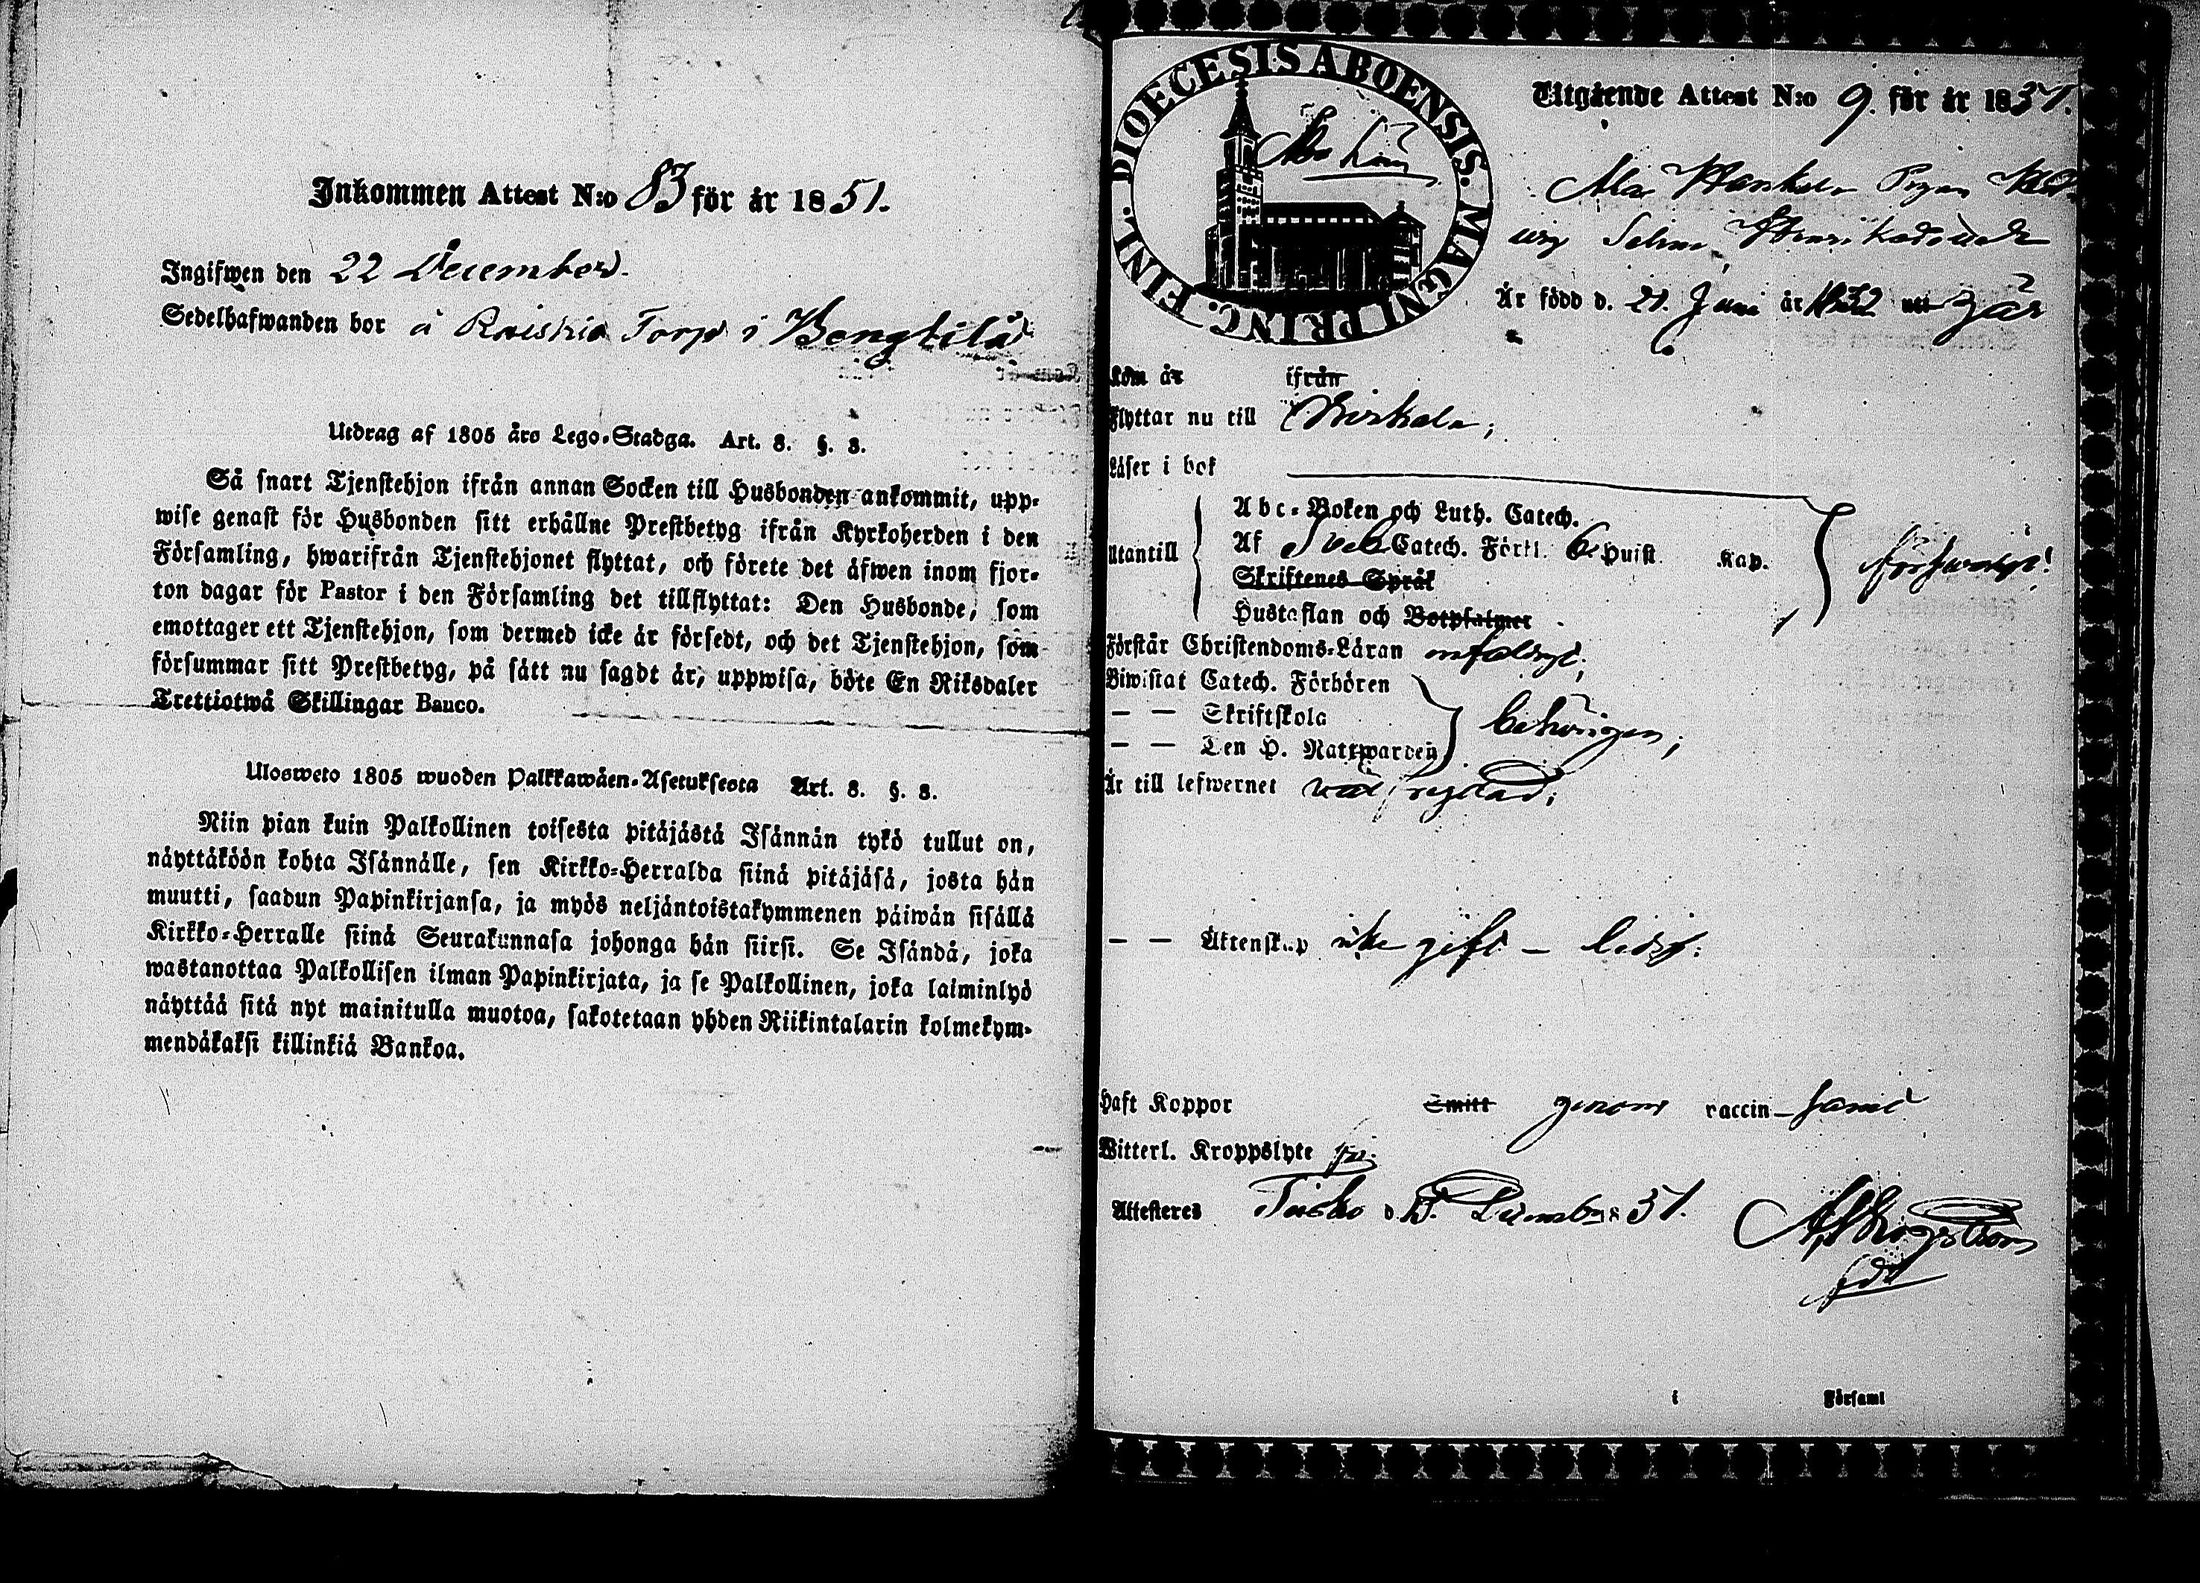 Inkommen Attest N:o 83 för år 1851.
Ingifwen den 22 December.
Sedelhafwanden bor å Torp i Bengtilå
Utdrag af 1805 års Lego-Stadga. Art. 8. §. 8.
Så snart Tjenstehjon ifrån annan Socken till Husbonden ankommit, upp-
wise genast för Husbonden sitt erhållne Prestbetyg ifrån Kyrkoherden i den
Församling, hwarifrån Tjenstehjonet flyttat, och förete det äfwen inom fjor-
ton dagar för Pastor i den Församling det tillflyttat: Den Husbonde, som
emottager ett Tjenstehjon, som dermed icke är försedt, och det Tjenstehjon, som
försummar sitt Prestbetyg, på sätt nu sagdt är, uppwisa, böte En Riksdaler
Trettiotwå Skillingar Banco.
Ulosweto 1805 wuoden Palkkawäen-Asetuksesta Art. 8. §. 8.
Niin pian kuin Palkollinen toisesta pitäjästä Isännän tykö tullut on,
näyttäköön kohta Isännälle, sen Kirkko-Herralda siinä pitäjäsä, josta hän
muutti, saadun Papinkirjansa, ja myös neljäntoistakymmenen päiwän sisällä
Kirkko-Herralle siinä Seurakunnasa johonga hän siirsi. Se Isändä, joka
wastanottaa Palkollisen ilman Papinkirjata, ja se Palkollinen, joka laiminlyö
näyttää sitä nyt mainitulla muotoa, sakotetaan yhden Riikintalarin kolmekym-
mendäkaksi killinkiä Bankoa.
DIOECESIS ABOENSIS. MAGNI PRINC. FINL.
Åbo Län
Utgående Attest N:o 9. för år 1851.
Pigan
Henriksdotter
Är född d. 21. Juni år 1832
Kom år ifrån
Flyttar nu till Kiskala;
Läser i bok
Utantill
Abc-Boken och Luth. Catech.
Af Sveb. Catech. Förkl. Huist. Kap.
Skriftenes Språk
Hustaflan och Botpsalmer
försvarligt!
Förstår Christendoms-Läran enfaldigt;
Biwistat Catech. Förhören
— — Skriftskola
— — Den H. Nattwarden
behörigen;
Är till lefwernet väl frejdad;
— — Äktenskap icke gift – ledig:
Haft Koppor Smitt genom vaccin
Witterl. Kroppslyte
Attesteres d. December 51.
i Församl